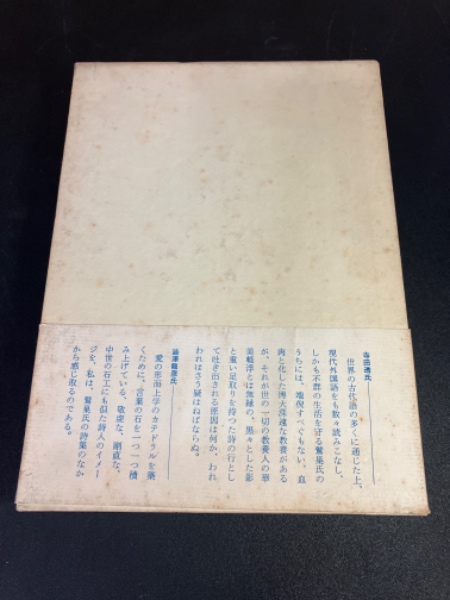 寺田透氏
世界の古代語の多くに通じた上、
現代外国語をも数々読みこなし、
しかも不群の生活を守る鷲巣氏の
うちには、端倪すべくもない、血
肉と化した博大深遠な教養がある
が、それが世の一切の教養人の華
美軽浮とは無縁の、黒々とした影
と重い足取りを持つた詩の行とし
て吐き出される原因は何か、われ
われはさう疑はねばならぬ。
澁澤龍彦氏
愛の形而上学のカテドラルを築
くために、言葉の石を一つ一つ積
み上げている、敬虔な、剛直な、
中世の石工にも似た詩人のイメー
ジを、私は、鷲巣氏の詩集のなか
から感じ取るのである。